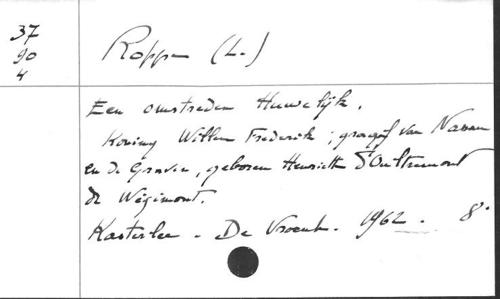 37
90
4
Roppe (L.)
Een omstreden Huwelijk.
Koning Willem Frederik, graaf van Nassau
en de Gravin, geboren Henriette d'Oultremont
de Wégimont.
Kasterlee. De Vroente. 1962. 8°